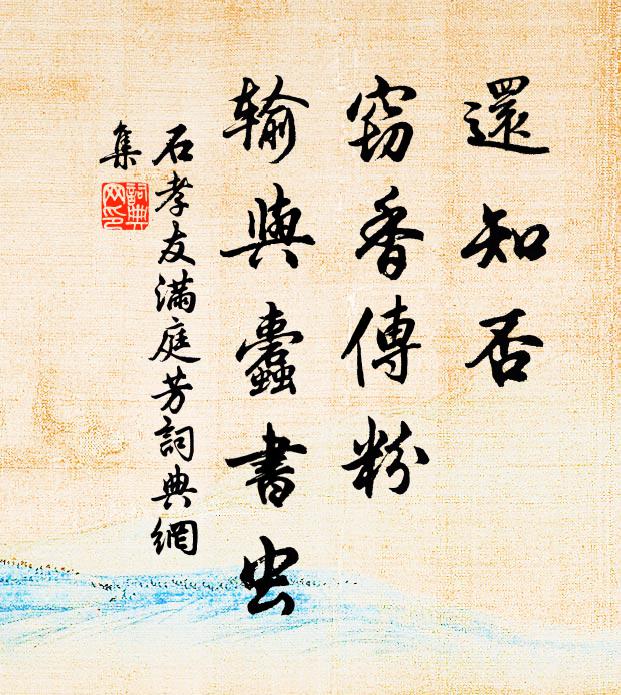 還知否
竊香傳粉
輸與蠹書虫
石孝友滿庭芳詞典網
集
詞典網印